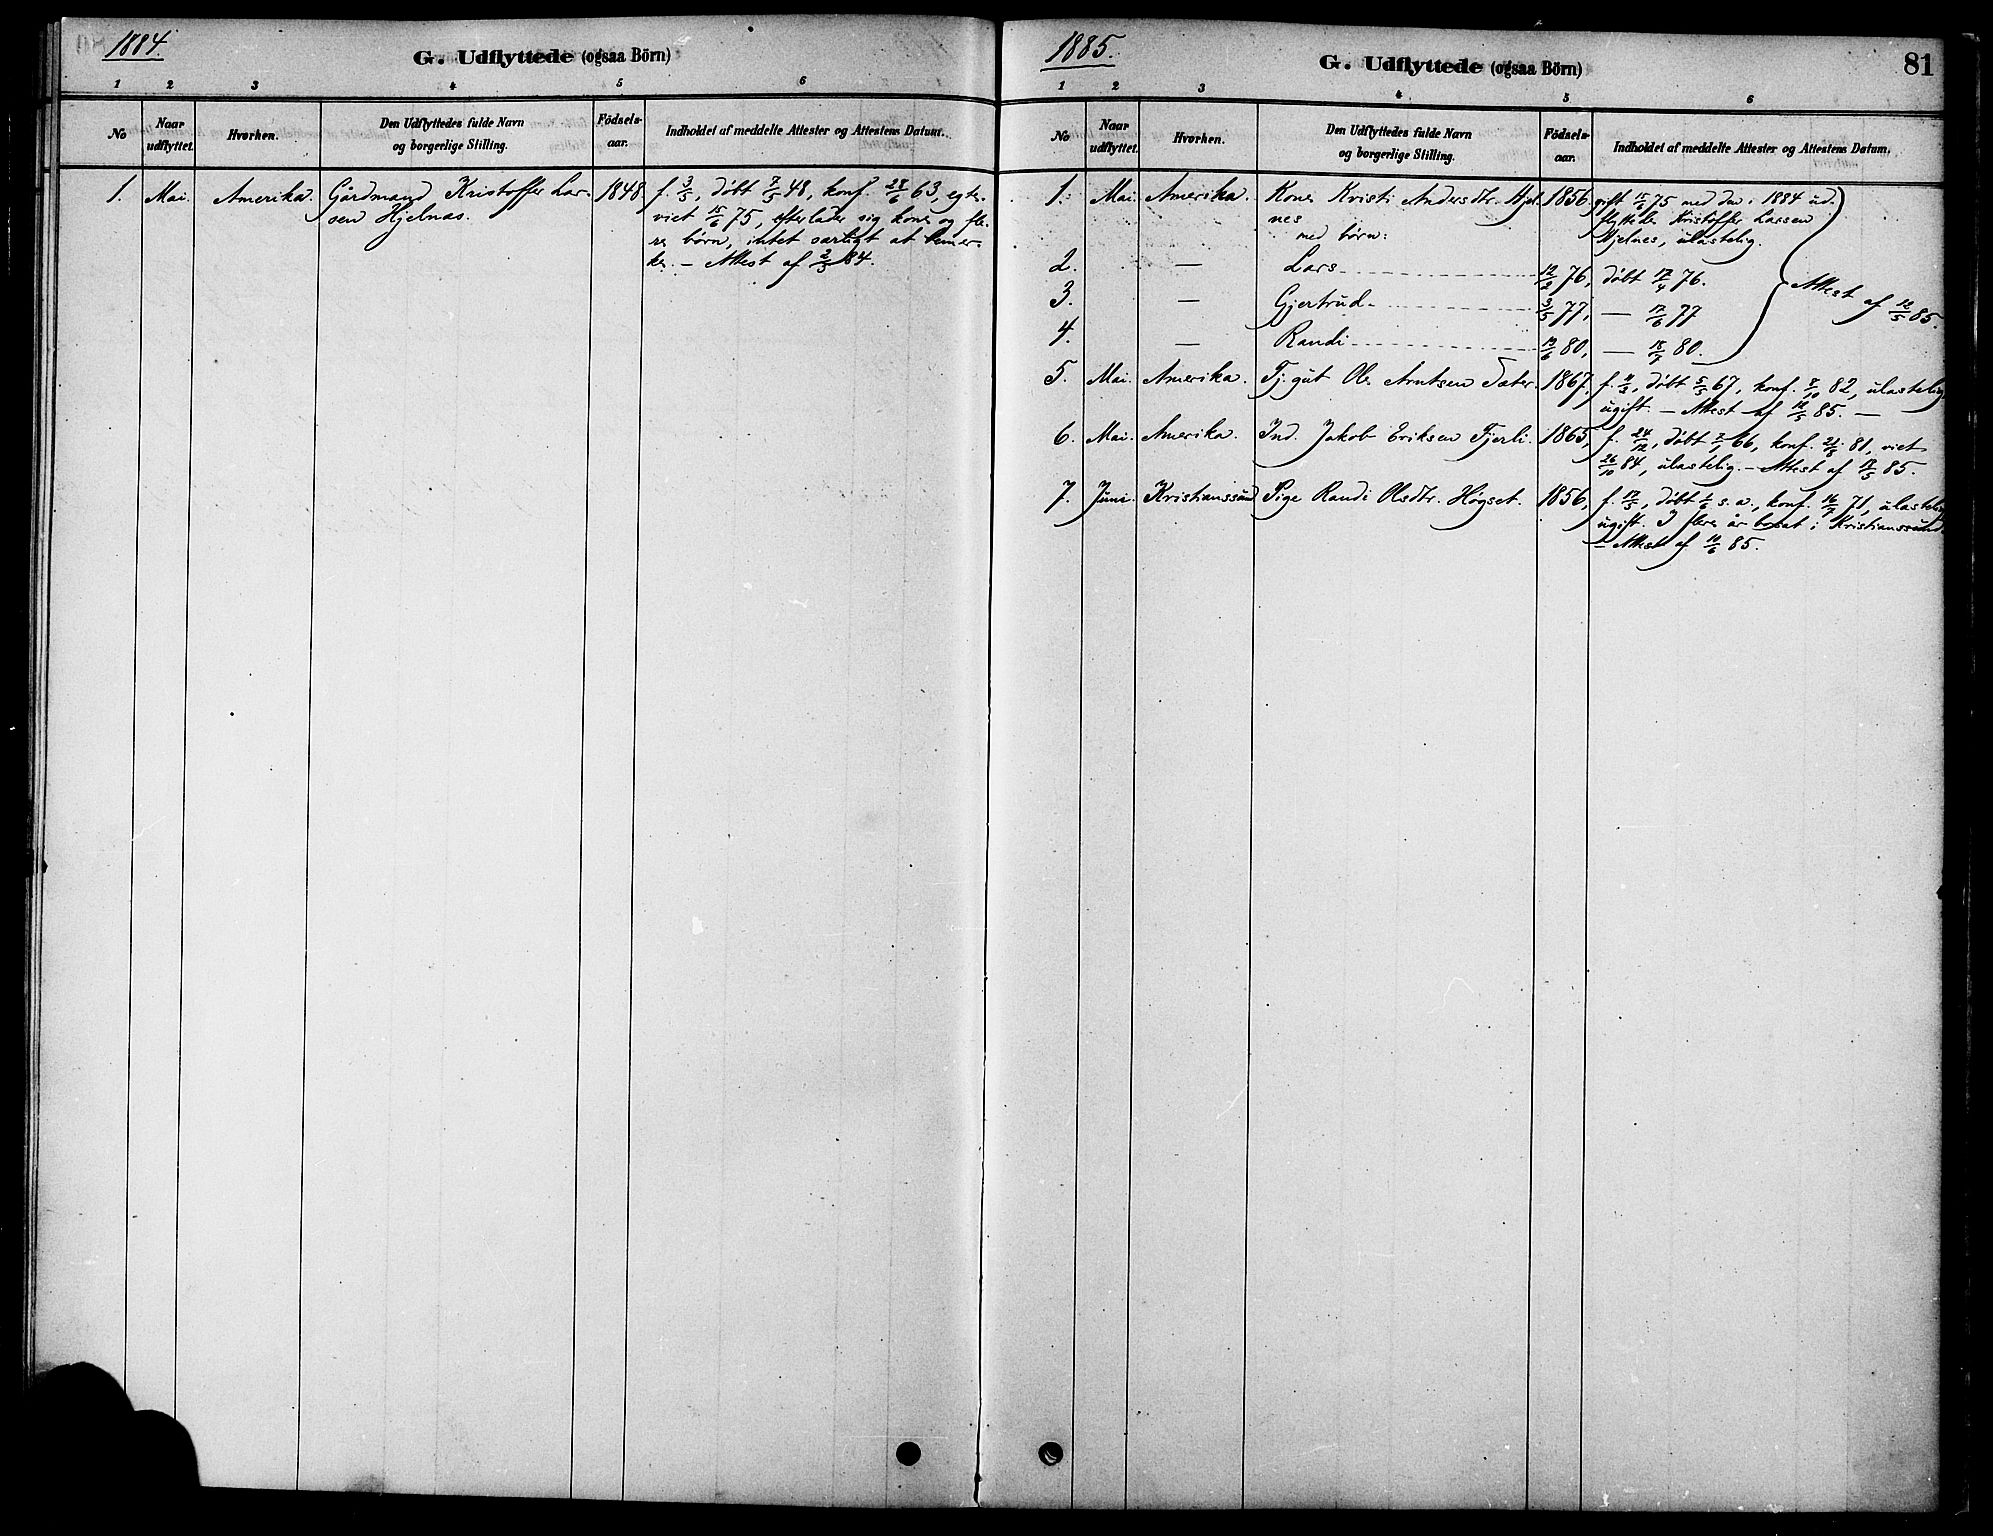 1884.
G. Udflyttede (ogsaa Börn)
1 2 3 4 5 6
No
Naar udflyttet.
Hvorhen.
Den Udflyttedes fulde Navn
og borgerlige Stilling.
Födsels-
aar.
Indholdet af meddelte Attester og Attestens Datum.
1. Mai. Amerika. Gårdmand Kristoffer Lar- 1848 f. 3/5, døbt 7/5 48, konf. 28/6 63, egte-
sen Hjelnæs. viet 15/6 75, efterlader sig kone og fle-
re børn, intet særligt at bemær-
ke. — Attest af 2/5 84.
1885.
G. Udflyttede (ogsaa Börn)
81
1 2 3 4 5 6
No
Naar
udflyttet.
Hvorhen.
Den Udflyttedes fulde Navn
og borgerlige Stilling.
Födsels-
aar.
Indholdet af meddelte Attester og Attestens Datum.
1. Mai. Amerika. Kone Kristi Andersdtr. Hjel- 1856. gift 15/6 75 med den i 1884 ud-
nes flyttede Kristoffer Larsen
med børn: Hjelnes, ulastelig.
2. — Lars 12/2 76, døbt 17/4 76.
3. — Gjertrud 3/5 77, — 17/6 77
4. — Randi 13/6 80, — 18/7 80.
Attest af 12/5 85.
5. Mai. Amerika. Tj.gut Ole Arntsen Sæter. 1867, f. 11/3, døbt 5/5 67, konf. 8/10 82, ulastelig
ugift. — Attest af 12/5 85. —
6. Mai. Amerika. Ind. Jakob Eriksen Fjerli. 1865, f. 24/12, døbt 7/1 66, konf. 21/8 81, viet
26/10 84, ulastelig. — Attest af 17/5 85.
7. Juni. Kristianssund Pige Randi Olsdtr. Høgset. 1856, f. 17/5, døbt 1/6 s.a., konf. 16/7 71, ulastelig
ugift. I flere år bosat i Kristianssund.
— Attest af 10/6 85.